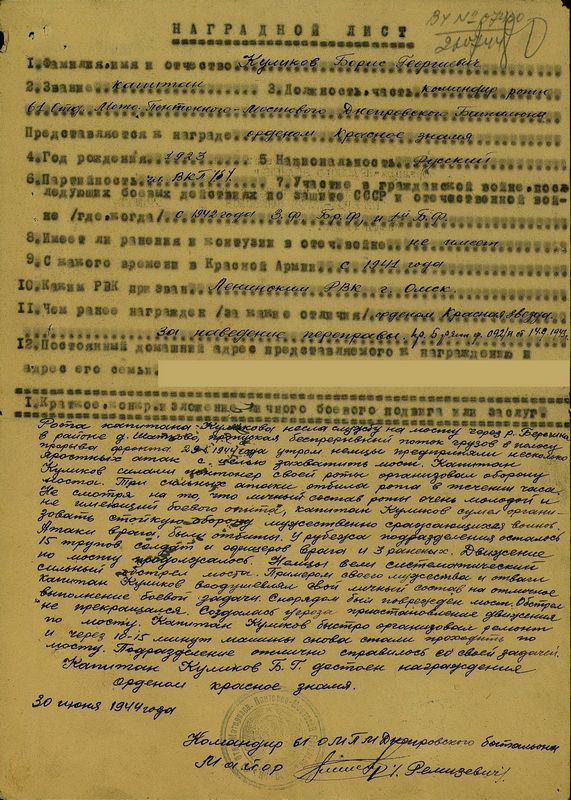 ВХ № 0740
НАГРАДНОЙ ЛИСТ
1. Фамилия, имя и отчество Куликов Борис Георгиевич
2. Звание капитан 3. Должность, часть командир роты
61 Отд. Мото-Понтонного-Мостового Днепровского Батальона
Представляется к награде орденом Красное знамя
4. Год рождения 1923 5. Национальность Русский
6. Партийность чл. ВКП/б/. 7. Участие в гражданской войне, пос-
ледующих боевых действиях по защите СССР и отечественной вой-
не /где, когда/ с 1942 года З.Ф. Бр.Ф. и 1й Б.Ф.
8. Имеет ли ранения и контузии в отеч. войне не имеет
9. С какого времени в Красной Армии с 1941 года
10. Каким РВК призван Ленинским РВК г. Омск.
11. Чем ранее награжден /за какие отличия/ орденом Красная звезда
за наведение переправы.
12. Постоянный домашний адрес представляемого к награждению и
адрес его семьи
1. Краткое, конкр. изложение личного боевого подвига или заслуг.
Рота капитана Куликова несла службу на мосту через р. Березина
в районе д. пропуская беспрерывный поток грузов в полосу
прорыва фронта 1944 года утром немцы предприняли несколько
яростных атак с целью захватить мост. Капитан
Куликов силами своей роты организовал оборону
моста. Три сильных атаки отбила рота в течении часа.
Не смотря на то, что личный состав роты очень молодой и
не имеющий боевого опыта, капитан Куликов сумел органи-
зовать стойкую оборону мужественно сражающихся воинов.
Атаки врага были отбиты. У рубежа подразделения осталось
15 трупов солдат и офицеров врага и 3 раненых. Движение
по мосту продолжалось. Немцы вели систематический
сильный обстрел моста. Примером своего мужества и отваги
капитан Куликов воодушевлял свой личный состав на отличное
выполнение боевой задачи. Снарядом был поврежден мост. Обстрел
не прекращался. Создалась угроза приостановление движения
по мосту. Капитан Куликов быстро организовал ремонт
и через 10-15 минут машины снова стали проходить по
мосту. Подразделение отлично справилось со своей задачей.
Капитан Куликов Б.Г. достоен награждения
орденом красное знамя.
30 июня 1944 года
Командир 61 ОМПМ Днепровского батальона
Майор /Ремизевич/.